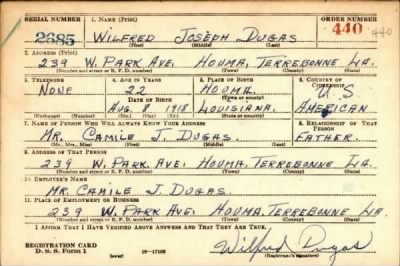 SERIAL NUMBER 1. NAME (Print) ORDER NUMBER
2685 WILFRED JOSEPH DUGAS 440 440
(First) (Middle) (Last)
2. ADDRESS (Print)
239 W. PARK AVE. HOUMA, TERREBONNE LA.
(Number and street or R. F. D. number) (Town) (County) (State)
3. TELEPHONE 4. AGE IN YEARS 5. PLACE OF BIRTH 6. COUNTRY OF CITIZENSHIP
NONE 22 HOUMA U.S
DATE OF BIRTH (Town or county)
AUG 9 1918 LOUISIANA. AMERICAN
(Mo.) (Day) (Yr.) (State or country)
7. NAME OF PERSON WHO WILL ALWAYS KNOW YOUR ADDRESS 8. RELATIONSHIP OF THAT PERSON
MR. CAMILE J. DUGAS. FATHER.
(Mr., Mrs., Miss) (First) (Middle) (Last)
9. ADDRESS OF THAT PERSON
239 W. PARK. AVE. HOUMA, TERREBONNE LA.
(Number and street or R. F. D. number) (Town) (County) (State)
10. EMPLOYER'S NAME
MR. CAMILE J. DUGAS.
11. PLACE OF EMPLOYMENT OR BUSINESS
239 W. PARK AVE. HOUMA. TERREBONNE LA.
(Number and street or R. F. D. number) (Town) (County) (State)
I AFFIRM THAT I HAVE VERIFIED ABOVE ANSWERS AND THAT THEY ARE TRUE.
REGISTRATION CARD
D. S. S. Form 1 (over) 16-17105 Wilfred Dugas
(Registrant's signature)